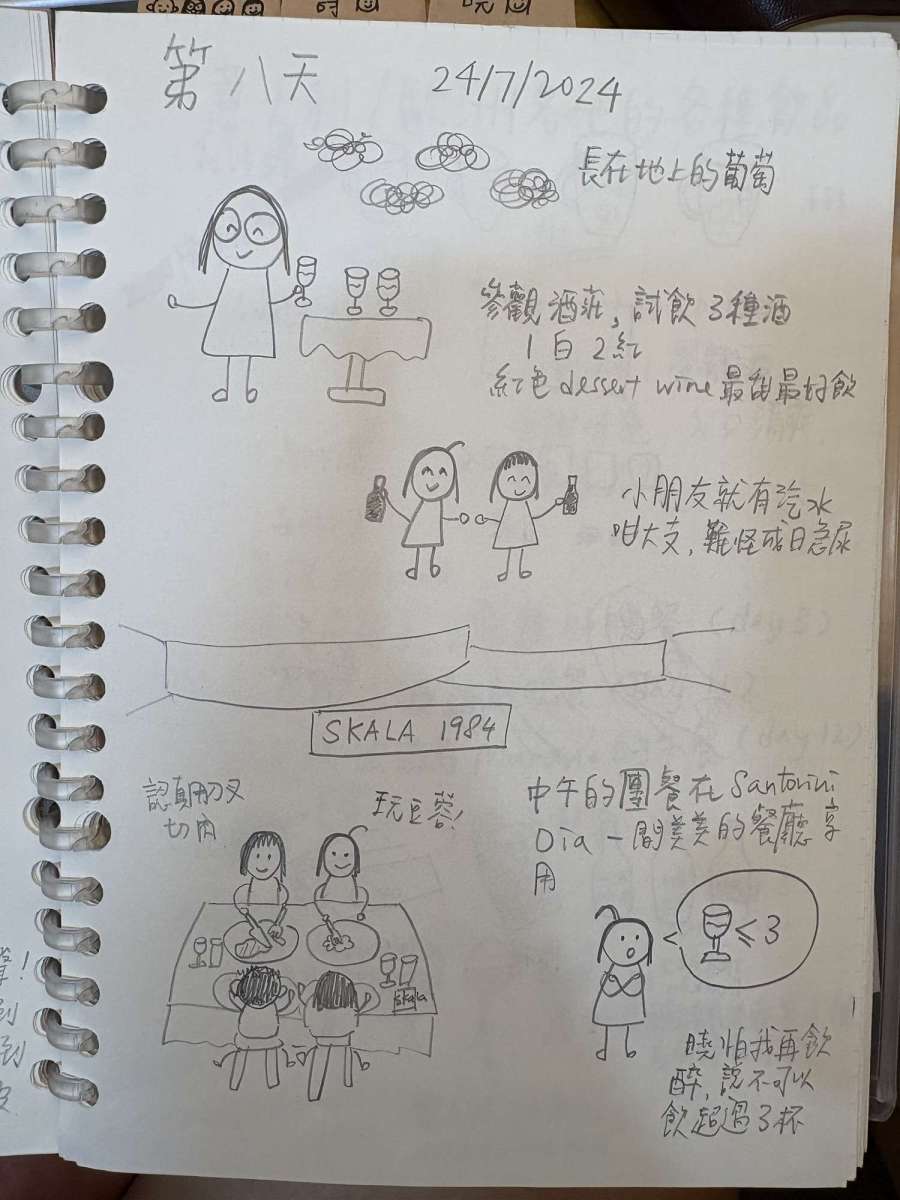 時
曉
第八天 24/7/2024
長在地上的葡萄
參觀酒莊,試飲3種酒
1白2紅
紅色dessert wine最甜最好飲
小朋友就有汽水
咁大支,難怪成日急尿
SKALA 1984
認真用刀叉
切肉
玩豆蓉!
中午的團餐在Santorini
Oia一間美美的餐廳享
用
skala
≤3
曉怕我再飲
醉,說不可以
飲超過3杯